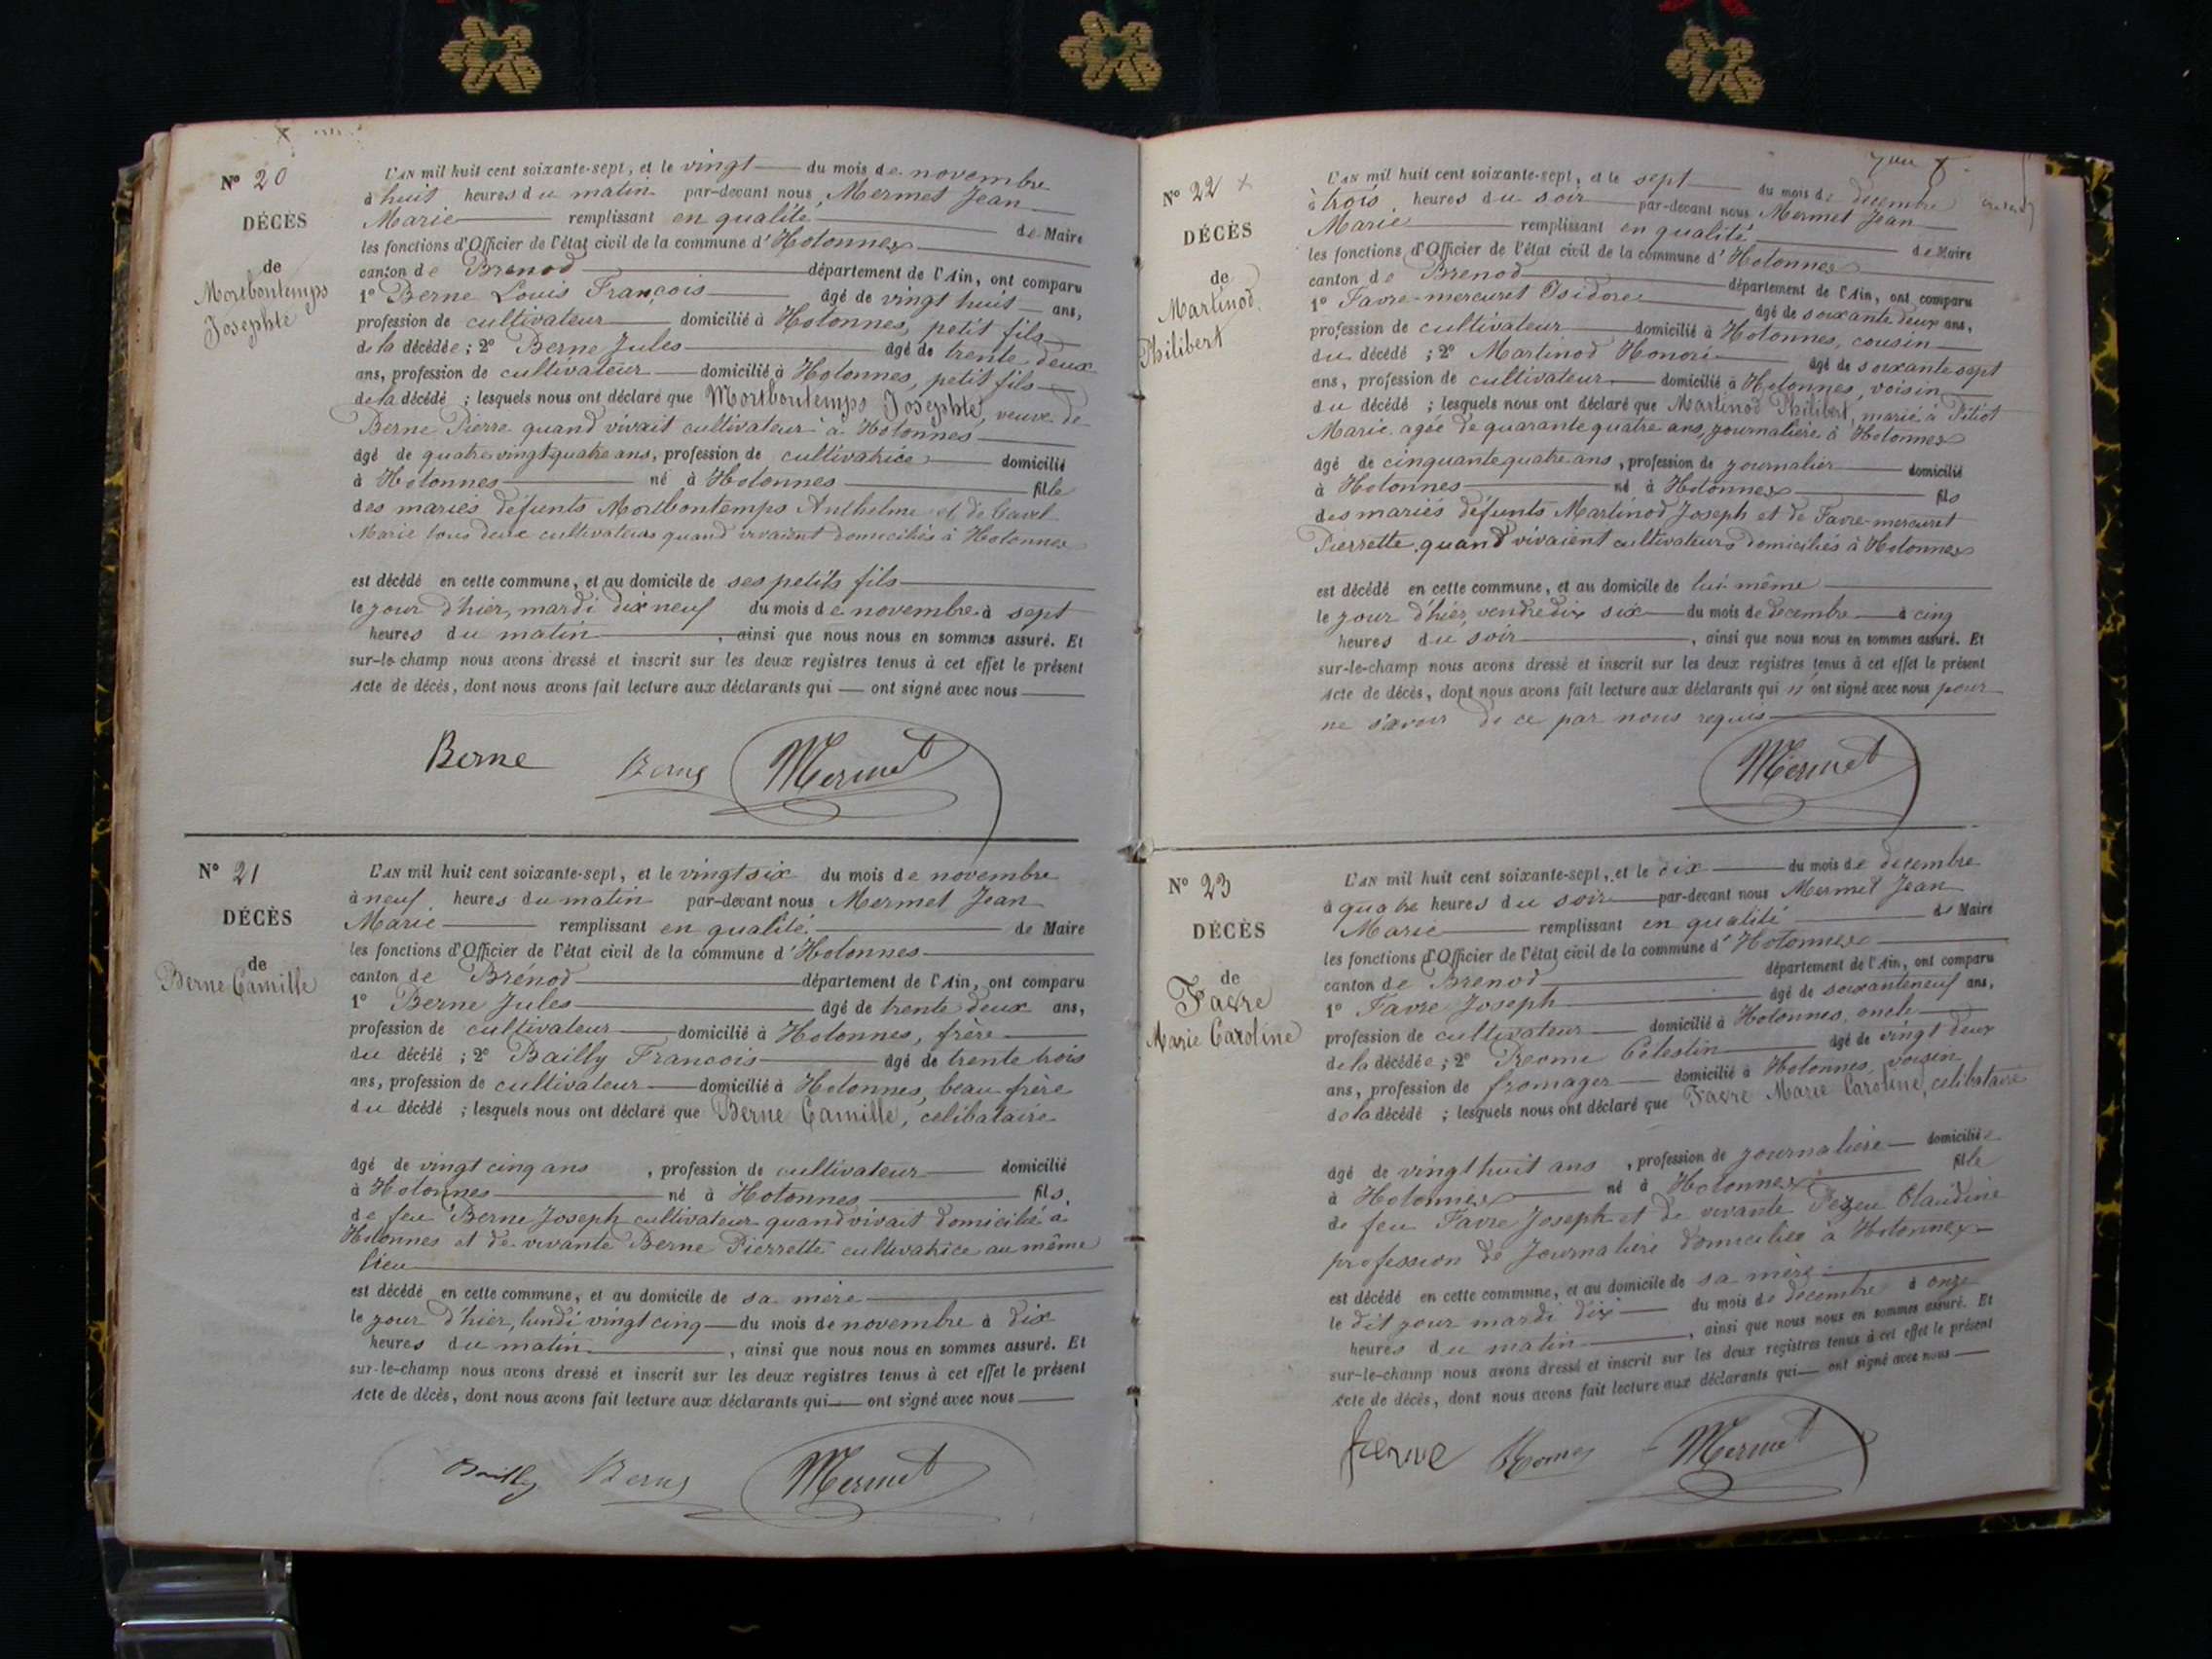 N° 20
DÉCÈS
de
Mortbontemps
Josephte
L'AN mil huit cent soixante-sept, et le vingt du mois de novembre
à huit heures du matin par-devant nous Mermet Jean
Marie remplissant en qualité de Maire
les fonctions d'Officier de l'état civil de la commune d'Hotonnes
canton de Brenod département de l'Ain, ont comparu
1° Berne Louis François âgé de vingt huit ans,
profession de cultivateur domicilié à Hotonnes, petit fils
de la décédée ; 2° Berne Jules âgé de trente deux
ans, profession de cultivateur domicilié à Hotonnes, petit fils
de la décédé ; lesquels nous ont déclaré que Mortbontemps Josephte, veuve de
Berne Pierre quand vivait cultivateur à Hotonnes
âgé de quatre vingt quatre ans, profession de cultivatrice domicilié
à Hotonnes né à Hotonnes fille
des mariés défunts Mortbontemps Anthelme et de Gavel
Marie tous deux cultivateurs quand vivaient domiciliés à Hotonnes
est décédé en cette commune, et au domicile de ses petits fils
le jour d'hier, mardi dix neuf du mois de novembre à sept
heures du matin, ainsi que nous nous en sommes assuré. Et
sur-le-champ nous avons dressé et inscrit sur les deux registres tenus à cet effet le présent
Acte de décès, dont nous avons fait lecture aux déclarants qui ont signé avec nous
Berne Berne Mermet
N° 21
DÉCÈS
de
Berne Camille
L'AN mil huit cent soixante-sept, et le vingt six du mois de novembre
à neuf heures du matin par-devant nous Mermet Jean
Marie remplissant en qualité de Maire
les fonctions d'Officier de l'état civil de la commune d'Hotonnes
canton de Brénod département de l'Ain, ont comparu
1° Berne Jules âgé de trente deux ans,
profession de cultivateur domicilié à Hotonnes, frère
du décédé ; 2° Bailly François âgé de trente trois
ans, profession de cultivateur domicilié à Hotonnes, beau frère
du décédé ; lesquels nous ont déclaré que Berne Camille, célibataire
âgé de vingt cinq ans, profession de cultivateur domicilié
à Hotonnes né à Hotonnes fils
de feu Berne Joseph cultivateur quand vivait domicilié à
Hotonnes et de vivante Berne Pierrette cultivatrice au même
lieu
est décédé en cette commune, et au domicile de sa mère
le jour d'hier, lundi vingt cinq du mois de novembre à dix
heures du matin, ainsi que nous nous en sommes assuré. Et
sur-le-champ nous avons dressé et inscrit sur les deux registres tenus à cet effet le présent
Acte de décès, dont nous avons fait lecture aux déclarants qui ont signé avec nous
Bailly Berne Mermet
N° 22 x
DÉCÈS
de
Martinod
Philibert
L'AN mil huit cent soixante-sept, et le sept du mois de decembre
à trois heures du soir par-devant nous Mermet Jean
Marie remplissant en qualité de Maire
les fonctions d'Officier de l'état civil de la commune d'Hotonnes
canton de Brenod département de l'Ain, ont comparu
1° Favre-mercuret Isidore âgé de soixante deux ans,
profession de cultivateur domicilié à Hotonnes, cousin
du décédé ; 2° Martinod Honoré âgé de soixante sept
ans, profession de cultivateur domicilié à Hotonnes, voisin
du décédé ; lesquels nous ont déclaré que Martinod Philibert, marié à Pitiot
Marie agée de quarante quatre ans, journalière à Hotonnes
âgé de cinquante quatre ans, profession de journalier domicilié
à Hotonnes né à Hotonnes fils
des mariés défunts Martinod Joseph et de Favre-mercuret
Pierrette, quand vivaient cultivateurs domiciliés à Hotonnes
est décédé en cette commune, et au domicile de lui même
le jour d'hier, vendredi six du mois de decembre à cinq
heures du soir, ainsi que nous nous en sommes assuré. Et
sur-le-champ nous avons dressé et inscrit sur les deux registres tenus à cet effet le présent
Acte de décès, dont nous avons fait lecture aux déclarants qui n'ont signé avec nous pour
ne savoir de ce par nous requis
Mermet
N° 23
DÉCÈS
de
Favre
Marie Caroline
L'AN mil huit cent soixante-sept, et le dix du mois de decembre
à quatre heures du soir par-devant nous Mermet Jean
Marie remplissant en qualité de Maire
les fonctions d'Officier de l'état civil de la commune d'Hotonnes
canton de Brenod département de l'Ain, ont comparu
1° Favre Joseph âgé de soixante neuf ans,
profession de cultivateur domicilié à Hotonnes, oncle
de la décédée ; 2° Celestin âgé de vingt deux
ans, profession de fromager domicilié à Hotonnes, voisin
de la décédé ; lesquels nous ont déclaré que Favre Marie Caroline, célibataire
âgé de vingt huit ans, profession de journalière domiciliée
à Hotonnes né à Hotonnes fille
de feu Favre Joseph et de vivante Pezeu Claudine
profession de Journalière domiciliée à Hotonnes
est décédé en cette commune, et au domicile de sa mère
le dit jour mardi dix du mois de decembre à onze
heures du matin, ainsi que nous nous en sommes assuré. Et
sur-le-champ nous avons dressé et inscrit sur les deux registres tenus à cet effet le présent
Acte de décès, dont nous avons fait lecture aux déclarants qui ont signé avec nous
Mermet